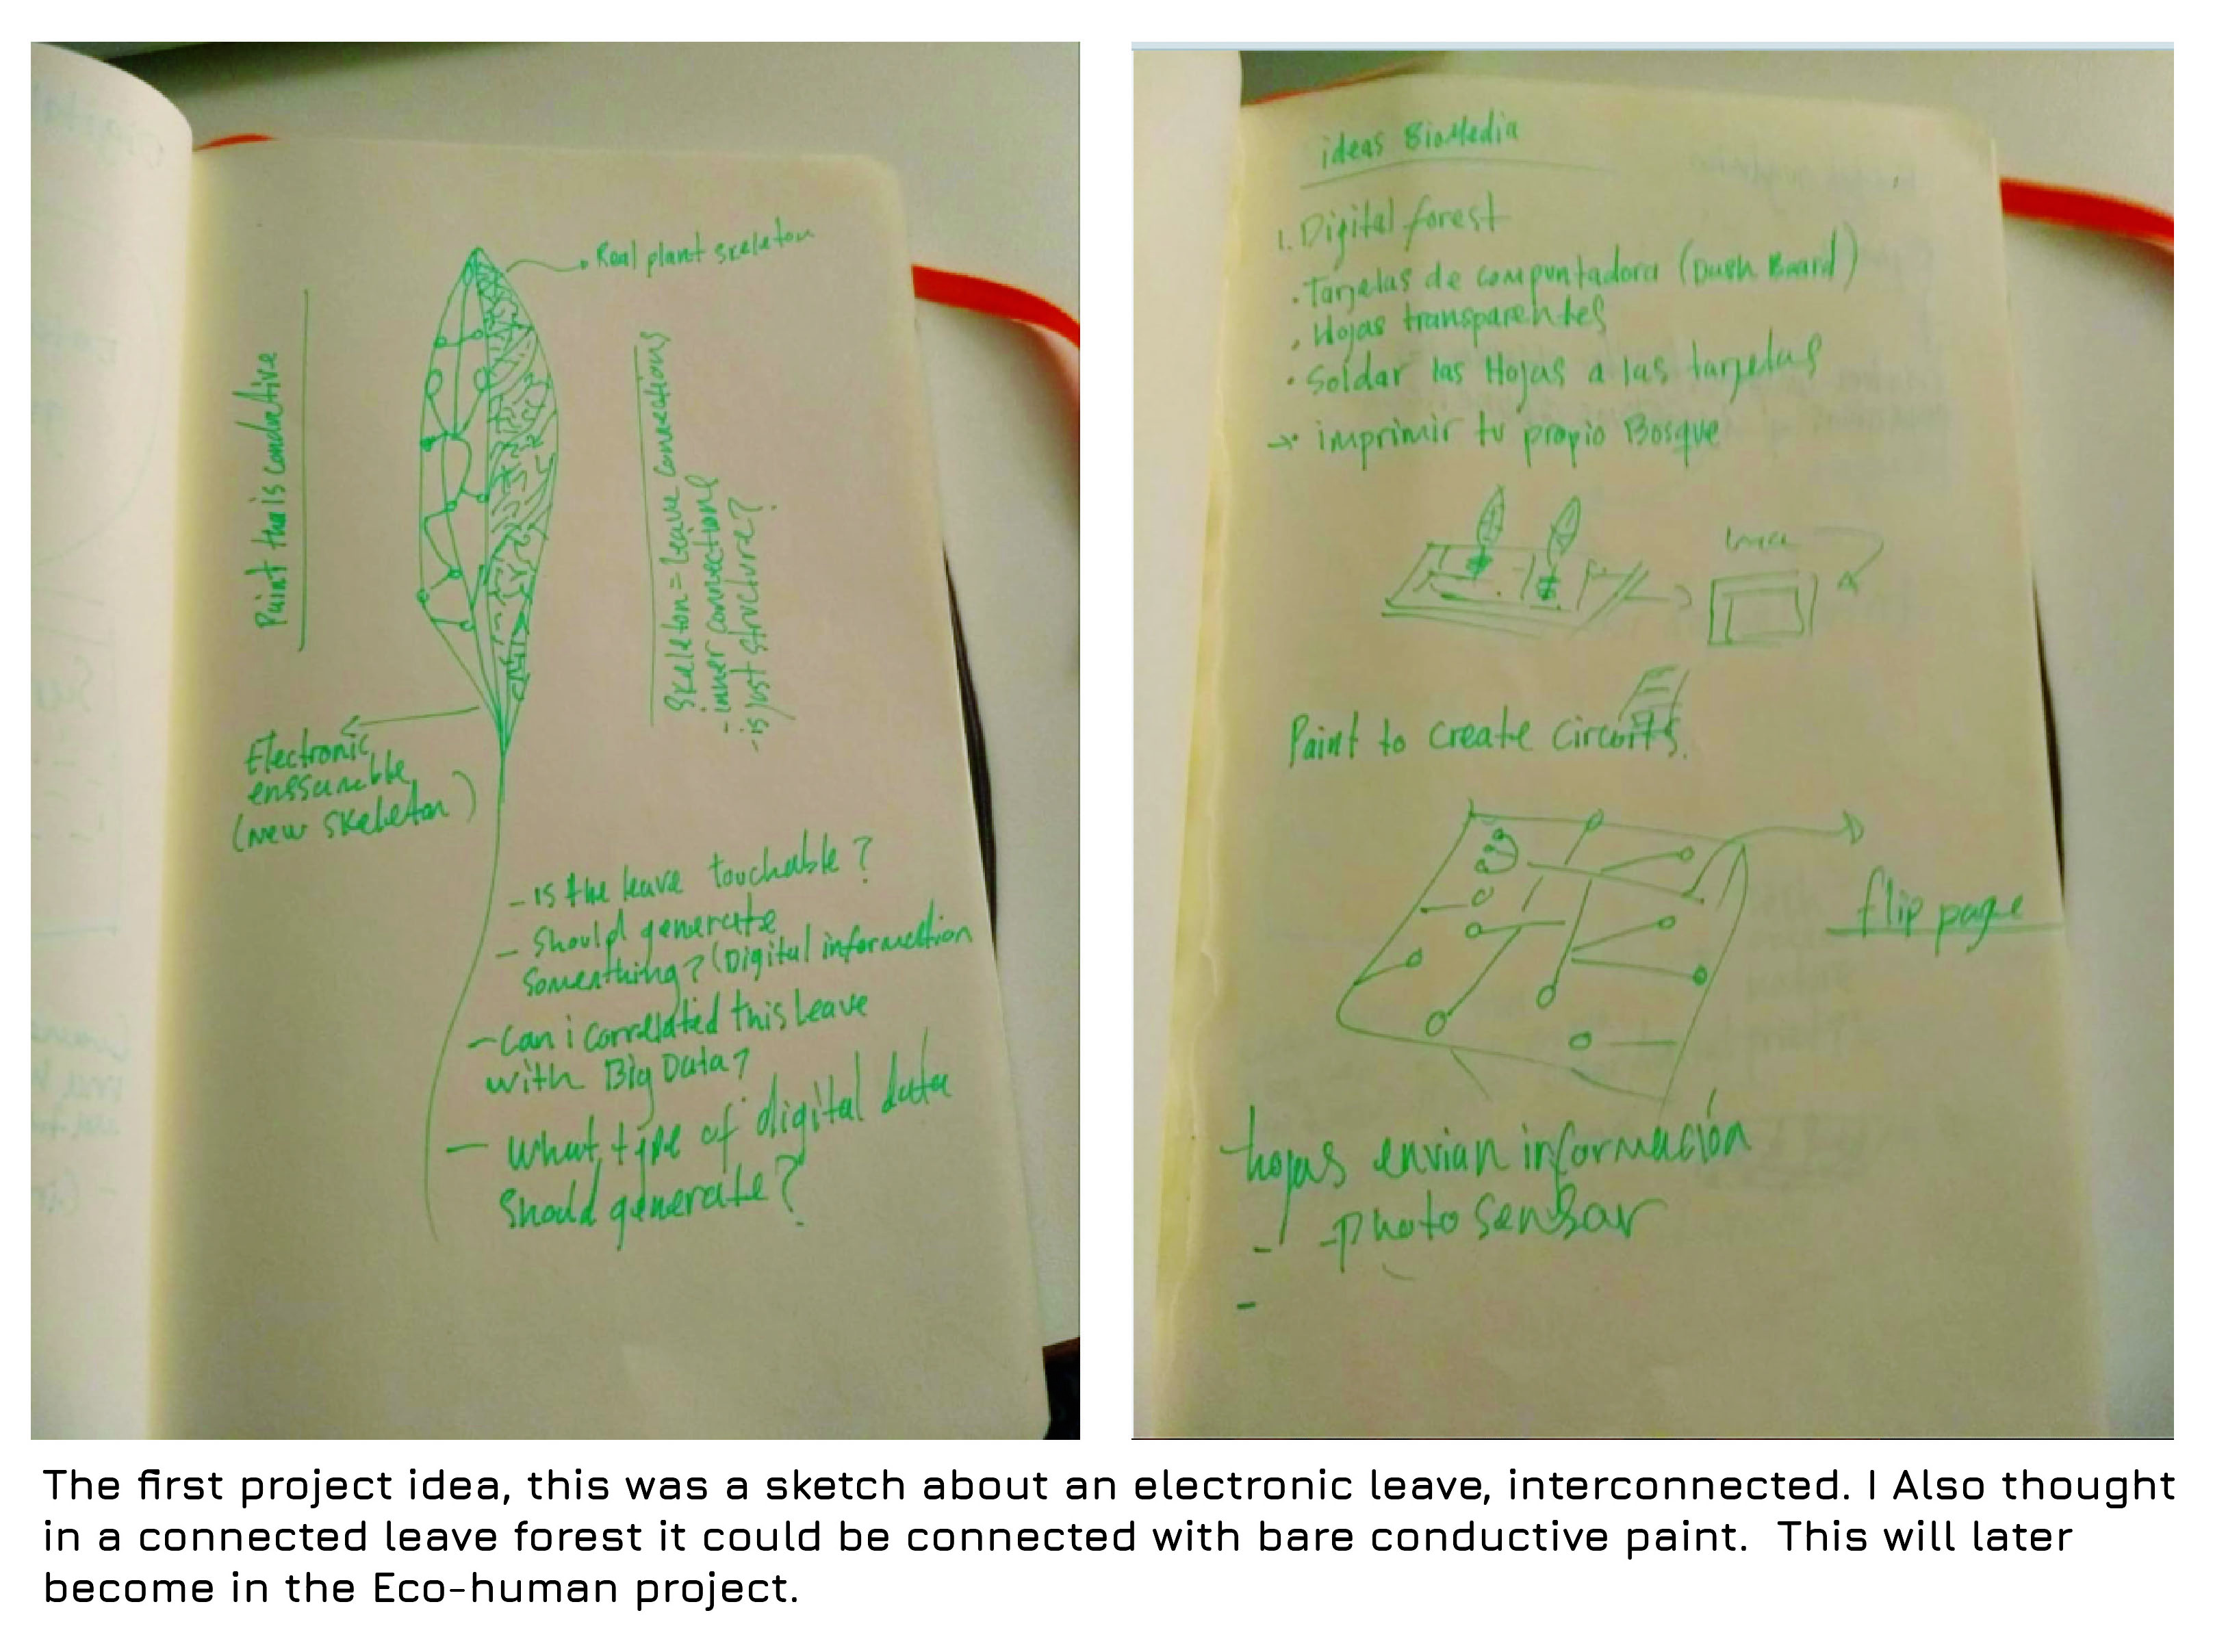 Real plant skeleton
Paint tha is conductive
Skeleton = Leave connections
- inner connections
- is just structure?
Electronic
enssamble
(new skeleton)
- is the leave touchable?
- Should generate
Somenthing? (Digital information
- Can i correlated this leave
with Big Data?
- What type of digital data
Should generate?
ideas BioMedia
1. Digital forest
· Tarjetas de compuntadora (Dash Board)
· Hojas transparentes
· Soldar las Hojas a las tarjetas
→ imprimir tu propio Bosque
Paint to create circuits.
flip page
hojas envian información
- photo sensar
-
The first project idea, this was a sketch about an electronic leave, interconnected. I Also thought
in a connected leave forest it could be connected with bare conductive paint. This will later
become in the Eco-human project.